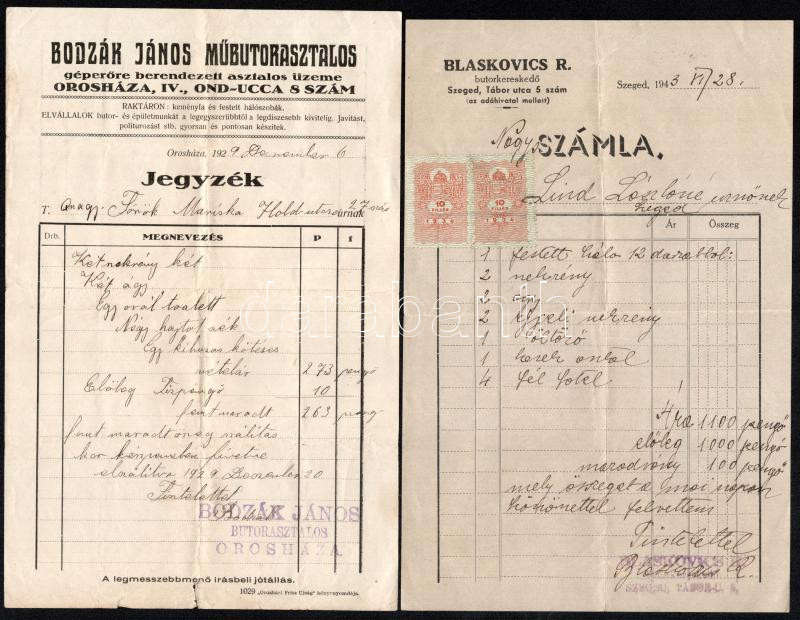 BODZÁK JÁNOS MŰBUTORASZTALOS
géperőre berendezett asztalos üzeme
OROSHÁZA, IV., OND-UCCA 8 SZÁM
RAKTÁRON: keményfa és festett hálószobák.
ELVÁLLALOK butor- és épületmunkát a legegyszerűbbtől a legdíszesebb kivitelig. Javítást,
politurozást stb. gyorsan és pontosan készítek.
Orosháza, 1929 December 6
Jegyzék
T. Török Mariska Hold-utca úrnak
Drb. MEGNEVEZÉS P f
Két két
Két ágy
Egy ovál toalett
Négy szék
Egy
vételár 273 pengő
Előleg Tízpengő 10
fent maradt 263 pengő
fent maradt
kor készpénzben fizetve
1929 December 20
Tisztelettel
BODZÁK JÁNOS
BUTORASZTALOS
OROSHÁZA
A legmesszebbmenő írásbeli jótállás.
1029 „Orosházi Friss Ujság" könyvnyomdája.
BLASKOVICS R.
butorkereskedő
Szeged, Tábor utca 5 szám
(az adóhivatal mellett)
Szeged, 1943 VI/28.
Nagys
SZÁMLA.
10
FILLÉR
1934
10
FILLÉR
1934
Lind Lászlóné úrnőnek
Szeged
Ár Összeg
1 festett háló 12 darabból:
2
2 ágy
2 éjjeli
1
1 asztal
4 fél fotel
Ára 1100 pengő
előleg 1000 pengő
maradvány 100 pengő
mely összeget a mai napon
köszönettel felvettem
Tisztelettel
BLASKOVICS R.
SZEGED, TÁBOR-U. 5.
darabanth